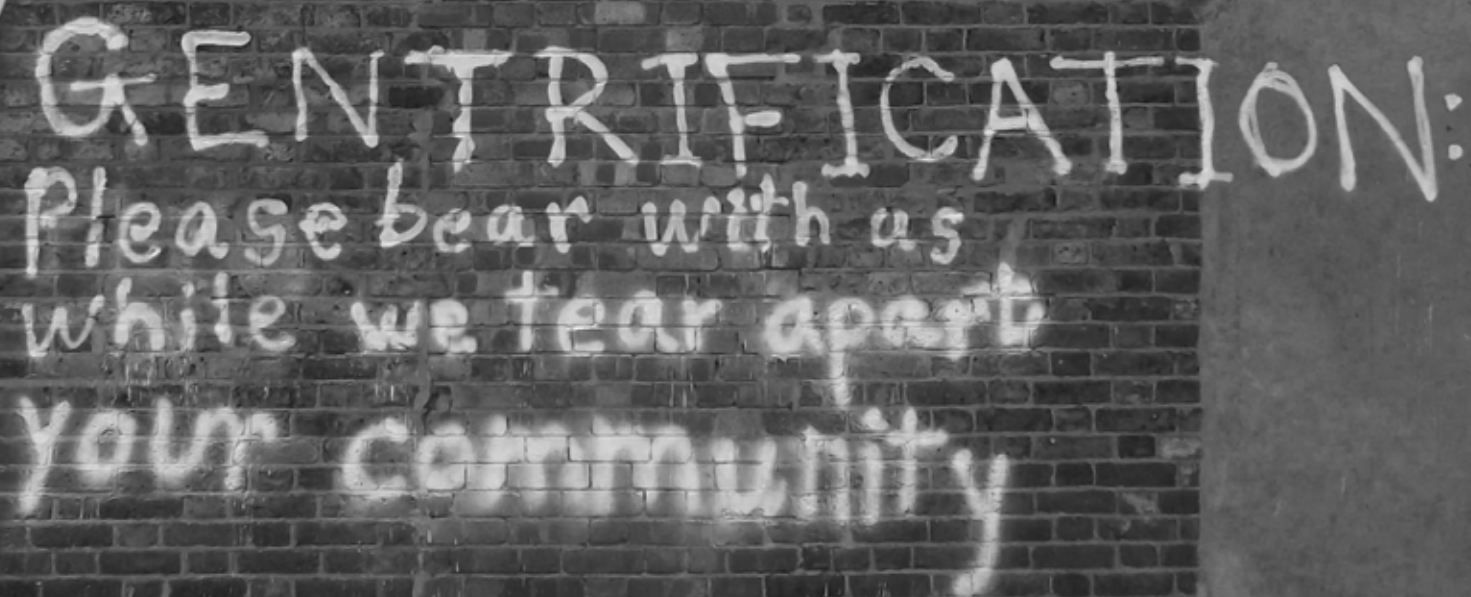 GENTRIFICATION:
Please bear with us
while we tear apart
your community